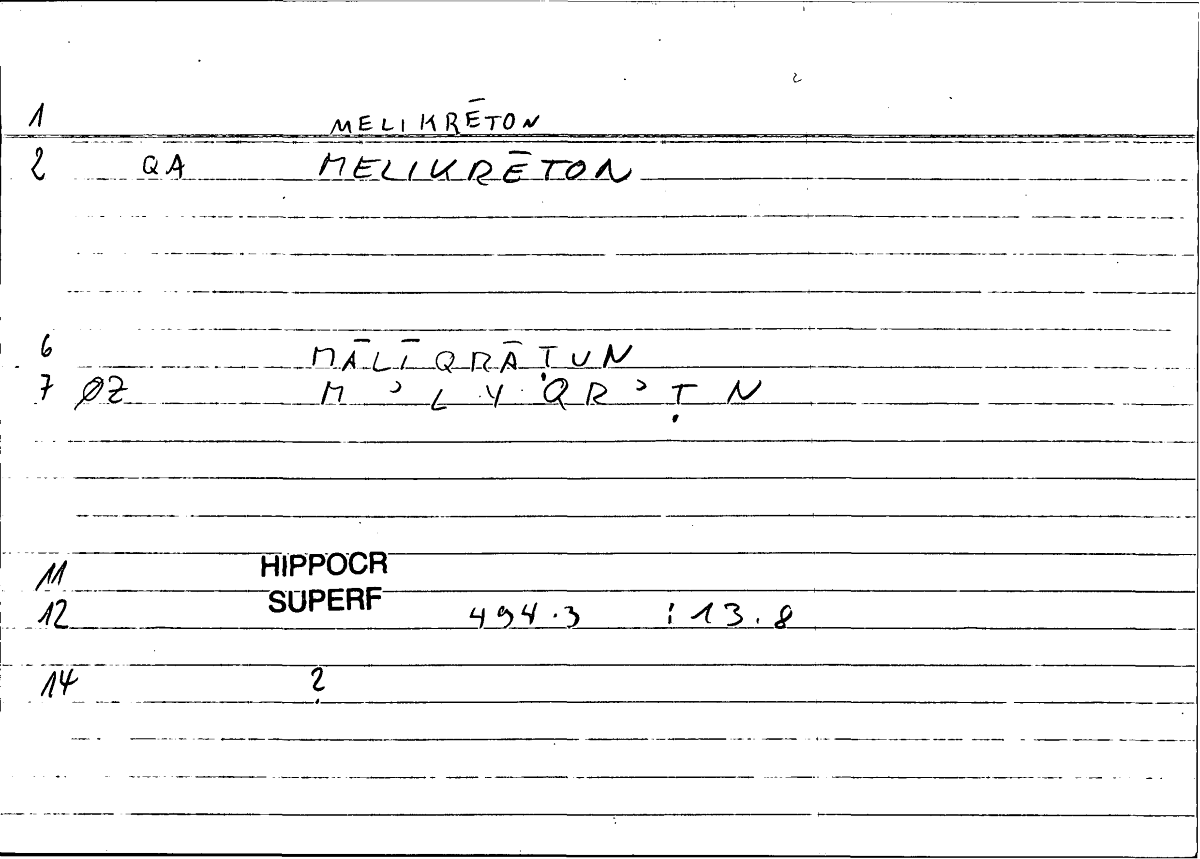 1 MELIKRĒTON
2 QA MELIKRĒTON
6 MĀLĪQRĀṬUN
7 ØZ M ʾ L Y Q R ʾ Ṭ N
11 HIPPOCR
12 SUPERF 494.3 : 13.8
14 2